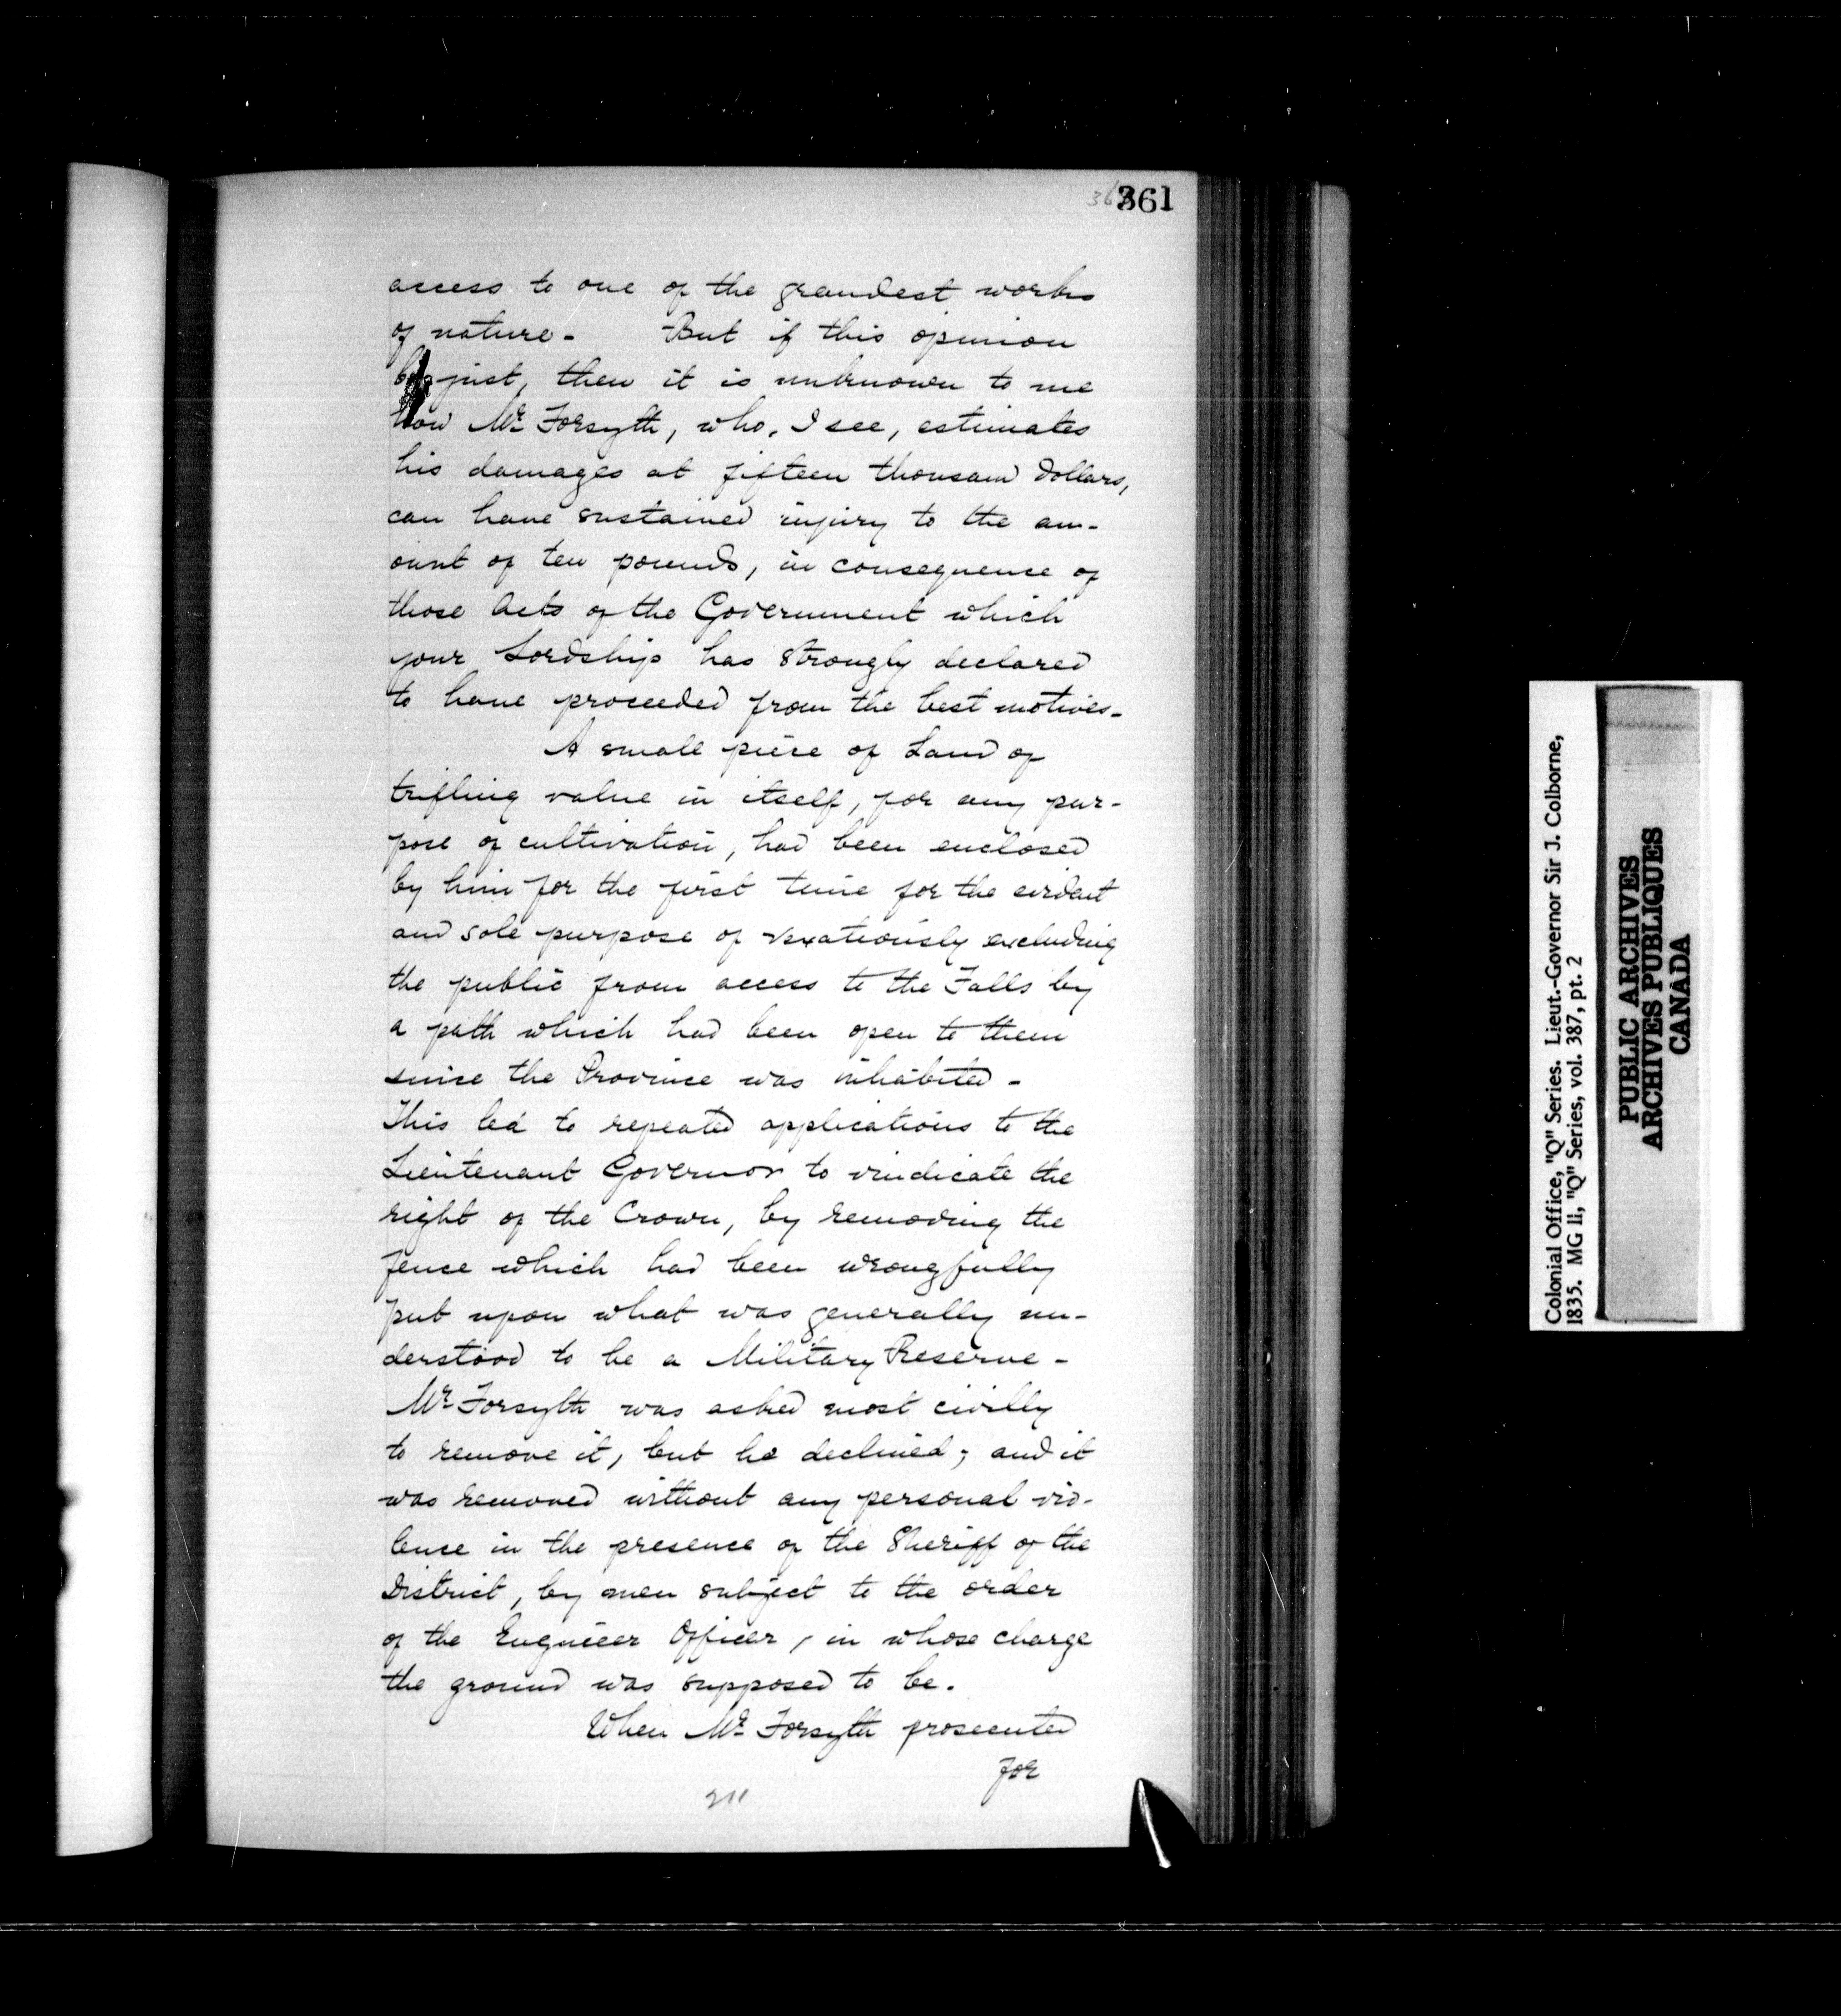 361
access to one of the grandest works
of nature - But if this opinion
be just, then it is unknown to me
how Mr Forsyth, who, I see, estimates
his damages at fifteen thousand dollars,
can have sustained injury to the am-
ount of ten pounds, in consequence of
those Acts of the Government which
your Lordship has strongly declared
to have proceeded from the best motives -
A small piece of Land of
trifling value in itself, for any pur-
pose of cultivation, had been enclosed
by him for the first time for the evident
and sole purpose of vexatiously excluding
the public from access to the Falls by
a path which had been open to them
since the Province was inhabited -
This led to repeated applications to the
Lieutenant Governor to vindicate the
right of the Crown, by removing the
fence which had been wrongfully
put upon what was generally un-
derstood to be a Military Reserve -
Mr Forsyth was asked most civilly
to remove it, but he declined; and it
was removed without any personal vio-
lence in the presence of the Sheriff of the
District, by men subject to the order
of the Engineer Officer, in whose charge
the ground was supposed to be.
When Mr Forsyth prosecuted
for
211
Colonial Office, "Q" Series. Lieut.-Governor Sir J. Colborne,
1835. MG 11, "Q" Series, vol. 387, pt. 2
PUBLIC ARCHIVES
ARCHIVES PUBLIQUES
CANADA